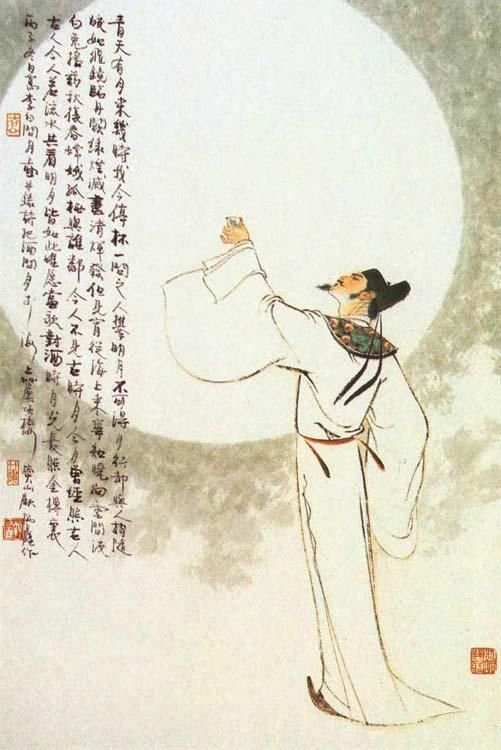 青天有月來幾時我今停杯一問之人攀明月不可得月行卻與人相隨
皎如飛鏡臨丹闕綠煙滅盡清輝發但見宵從海上來寧知曉向雲間沒
白兔搗藥秋復春嫦娥孤棲與誰鄰今人不見古時月今月曾經照古人
古人今人若流水共看明月皆如此唯願當歌對酒時月光長照金樽裏
丙子冬日寫李白問月並錄詩把酒問月於海上 樓 作